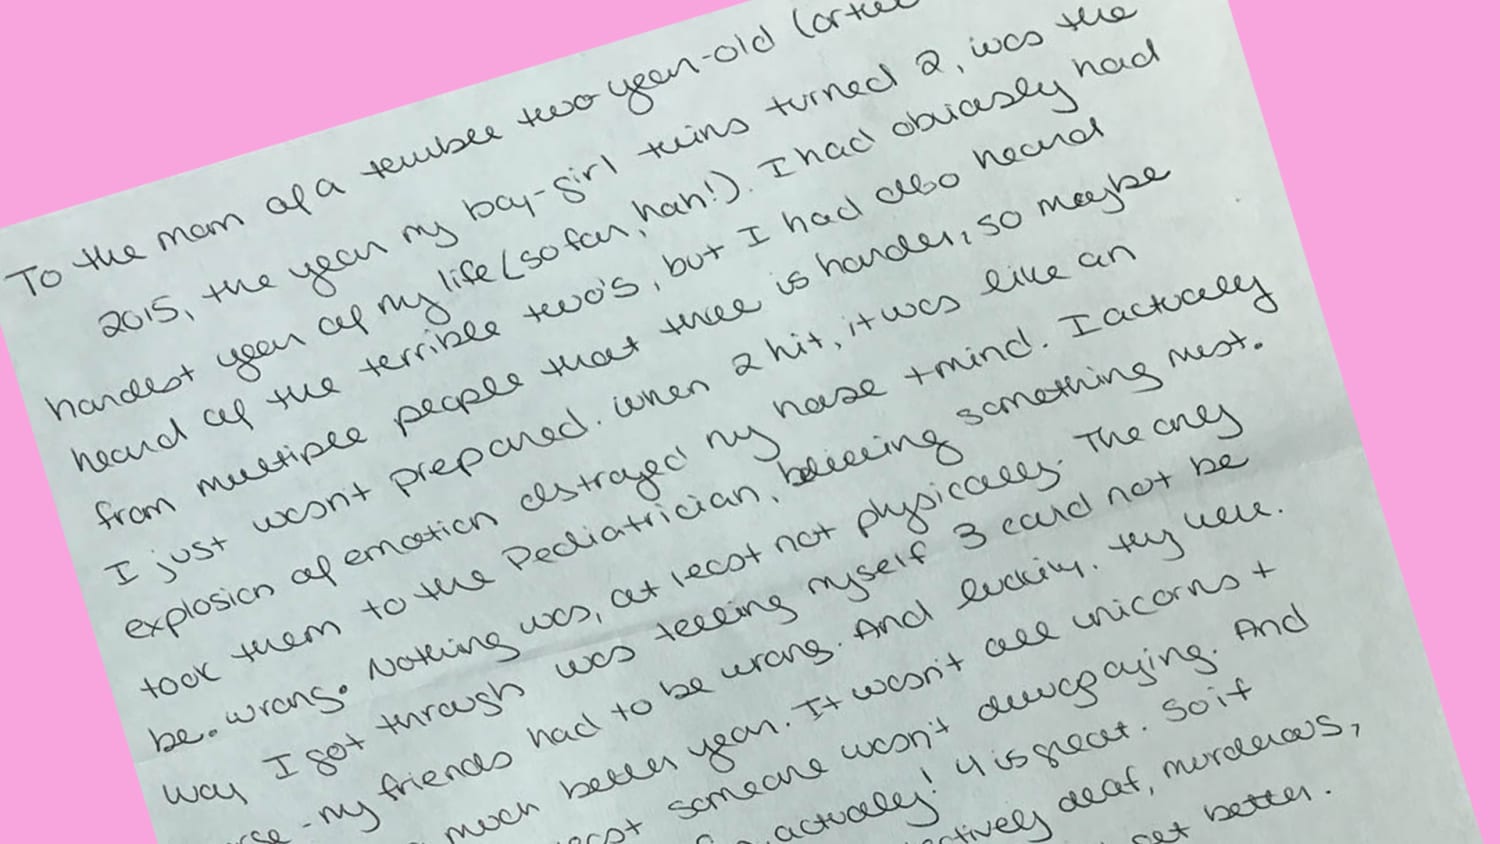 To the mom of a terrible two year-old (or
2015, the year my boy-girl twins turned 2, was the
hardest year of my life (so far, hah!). I had obviously had
heard of the terrible two's, but I had also heard
from multiple people that three is harder, so maybe
I just wasn't prepared. When 2 hit, it was like an
explosion of emotion destroyed my house + mind. I actually
took them to the Pediatrician, believing something must.
be. wrong. Nothing was, at least not physically. The only
way I got through was telling myself 3 could not be
- my friends had to be wrong. And luckily, they were.
much better year. It wasn't all unicorns +
someone wasn't always crying. And
actually! 4 is great. So if
deaf, murderous,
get better.